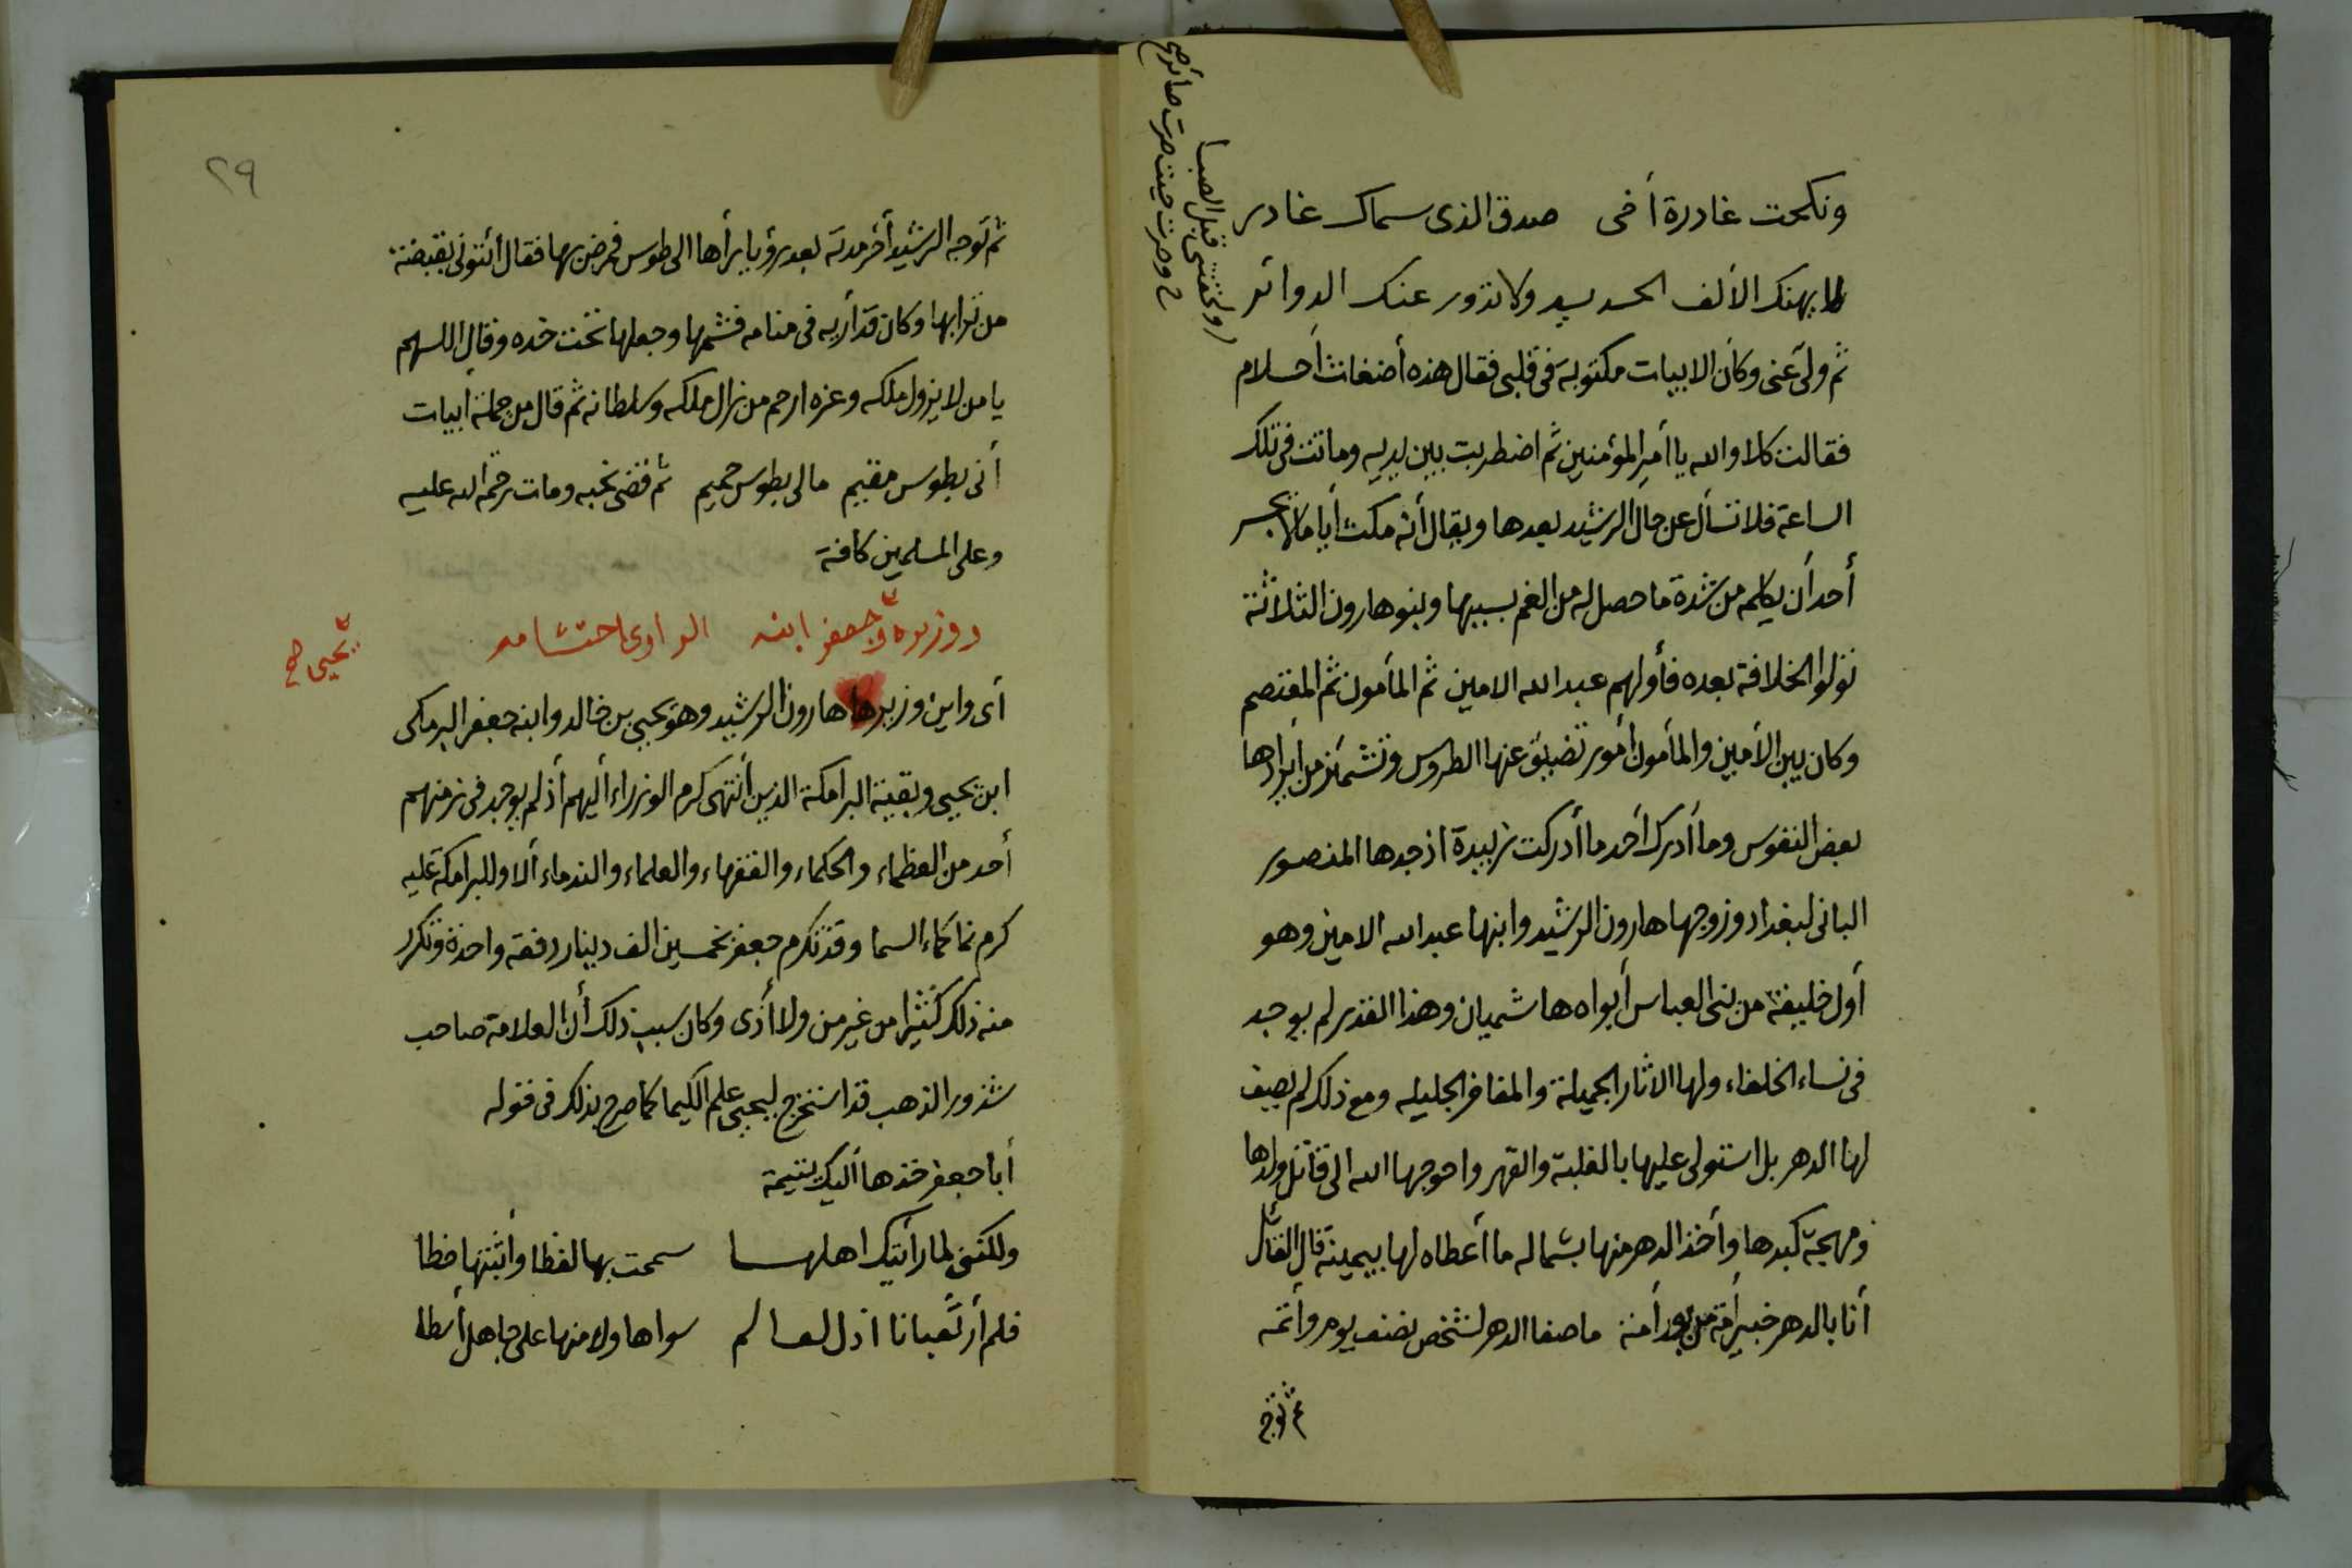 ونكحت غادرة أخى صدق الذى سماك غادر
لا يهنك الألف الجديد ولا تدور عنك الدوائر
ولحقتنى قبل الصبا
ح وصرت حيث صرت صائر صح
ثم ولى عنى وكأن الابيات مكتوبة فى قلبى فقال هذه أضغاث أحلام
فقالت كلا والله يا أمير المؤمنين ثم اضطربت بين يديه وماتت فى تلك
الساعة فلا تسأل عن حال الرشيد بعدها ويقال أنه مكث أياما لا يجسر
أحد أن يكلمه من شدة ما حصل له من الغم بسببها وبنو هارون الثلاثة
تولوا الخلافة بعده فأولهم عبد الله الامين ثم المأمون ثم المعتصم
وكان بين الأمين والمأمون أمور تضيق عنها الطروس وتشمئز من أيرادها
بعض النفوس وما أدرك أحد ما أدركت زبيدة اذ جدها المنصور
البانى لبغداد وزوجها هارون الرشيد وابنها عبد الله الامين وهو
أول خليفة من بنى العباس أبواه هاشميان وهذا القدر لم يوجد
فى نساء الخلفاء ولها الاثار الجميلة والمفاخر الجليله ومع ذلك لم يصف
لها الدهر بل استولى عليها بالغلبة والقهر واحوجها الله الى قاتل ولدها
ومهجة كبدها وأخذ الدهر منها بشماله ما أعطاه لها بيمينه قال القائل
أنا بالدهر خبير أمة من بعد أمنة ما صفا الدهر لشخص نصف يوم وأتمه
ثم توجه
٢٩
ثم توجه الرشيد أخر مدته بعد رؤيا برأها الى طوس فمرض بها فقال أئتونى بقبضة
من ترابها وكان قد أريه فى منامه فشمها وجعلها تحت خده وقال اللهم
يا من لا يزول ملكه وعزه ارحم من زال ملكه وسلطانه ثم قال من جملة أبيات
أنى بطوس مقيم مالى بطوس حميم ثم قضى نحبه ومات رحمة الله عليه
وعلى المسلمين كافة
ووزيره وجعفر ابنه الراوى احتشامه
يحيى صح
أى واين وزيرها هارون الرشيد وهو يحيى بن خالد وابنه جعفر البرمكى
ابن يحيى وبقية البرامكة الذين أنتهى كرم الوزراء أليهم أذ لم يوجد فى زمنهم
أحد من العظماء والحكماء والفقهاء والعلماء والندماء ألا وللبرامكة عليه
كرم نما كماء السما وقد تكرم جعفر بخمسين الف دينار دفعة واحدة وتكرر
منه ذلك كثيرا من غير من ولا أذى وكان سبب ذلك أن العلامة صاحب
شذور الذهب قد استخرج ليحيى علم الكيما كما صرح بذلك فى قوله
أبا جعفر خذها أليك يتيمة
ولكننى لما رأيتك اهلها سمحت بها لفظا وأثبتها خطا
فلم أر ثعبانا اذل لعالم سواها ولا منها على جاهل أسطا